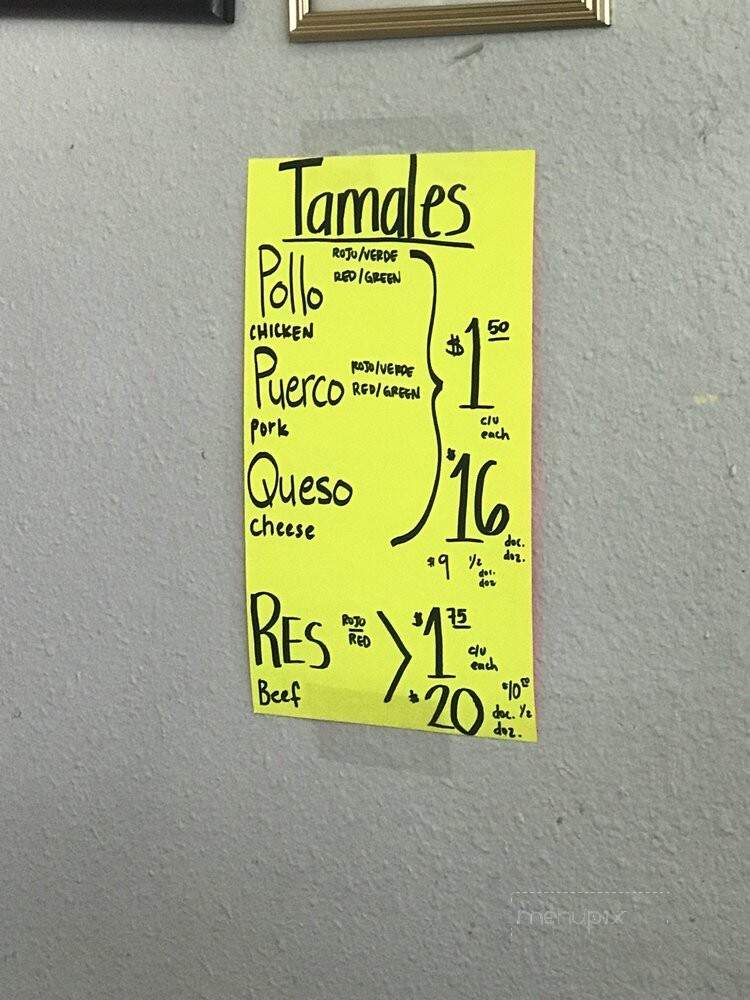 Tamales
Pollo ROJO/VERDE
RED/GREEN
CHICKEN
$1 50
c/u
each
Puerco ROJO/VERDE
RED/GREEN
pork
Queso
cheese
$16
doc.
doz.
$9 1/2
doc.
doz
RES ROJO
RED
Beef
$1 75
c/u
each
$20 doc.
doz.
$10 00
1/2
menupix